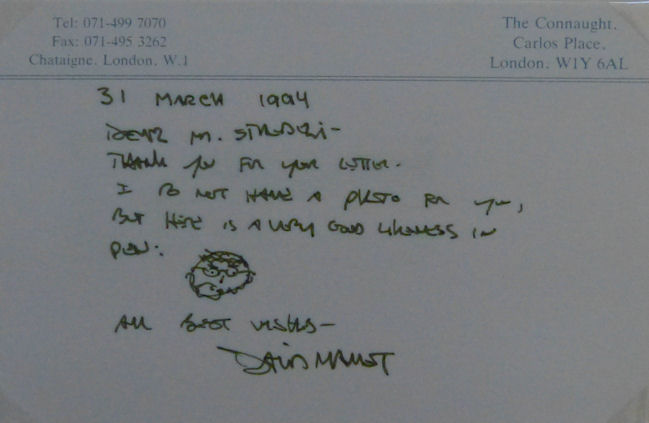 Tel: 071-499 7070
Fax: 071-495 3262
Chataigne, London, W.1
The Connaught,
Carlos Place,
London, W1Y 6AL
31 MARCH 1994
DEAR M.
THANK YOU FOR YOUR LETTER.
I DO NOT HAVE A PHOTO FOR YOU,
BUT HERE IS A VERY GOOD LIKENESS IN
PEN:
ALL BEST WISHES—
DAVID MAMET